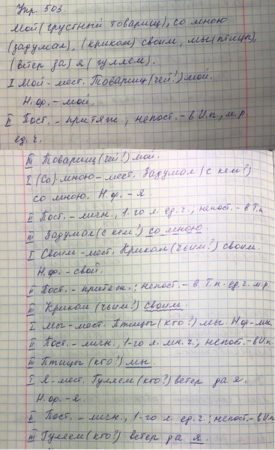 Упр. 503
Мой (грустный товарищ), со мною
(задумал), (криком) своим, мы (птицы),
(ветер да) я (гуляем).
I Мой - мест. Товарищ (чей?) мой.
Н.ф. - мой.
II Пост. - притяж., непост. - в И.п., м.р.
ед.ч.
III Товарищ (чей?) мой.
I (Со) мною - мест. Задумал (с кем?)
со мною. Н.ф. - я
II Пост. - личн., 1-го л. ед.ч.; непост. - в Т.п
III Задумал (с кем?) со мною.
I Своим - мест. Криком (чьим?) своим.
Н.ф. - свой.
II Пост. - притяж.; непост. - в Т.п. ед.ч. м.р
III Криком (чьим?) своим.
I Мы - мест. Птицы (кто?) мы. Н.ф. - мы.
II Пост. - личн., 1-го л. мн.ч.; непост. - в И.п
III Птицы (кто?) мы
I Я - мест. Гуляем (кто?) ветер да я.
Н.ф. - я.
II Пост. - личн., 1-го л. ед.ч.; непост. - в И.п
III Гуляем (кто?) ветер да я.